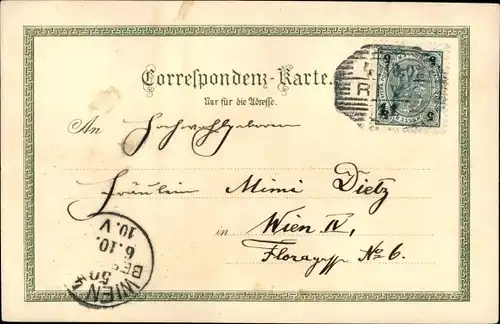 Correspondenz-Karte.
Nur für die Adresse.
An Hochwohlgeboren
Fräulein Mimi Dietz
in Wien IV,
Floragasse No 6.
WIEN
50
BES
6.10.
10.V